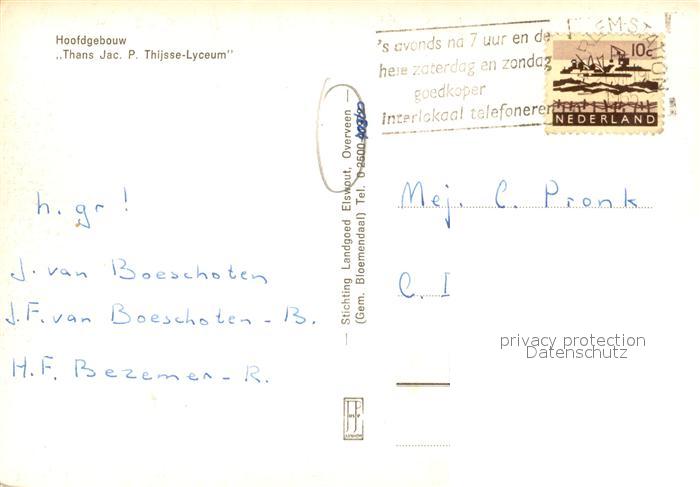 Hoofdgebouw
„Thans Jac. P. Thijsse-Lyceum"
h. gr!
J. van Boeschoten
J.F. van Boeschoten - B.
H.F. Bezemer - R.
— Stichting Landgoed Elswout, Overveen —
(Gem. Bloemendaal) Tel. 0 2500
's avonds na 7 uur en de
hele zaterdag en zondag
goedkoper
interlokaal telefoneren
HAARLEM-STATION
10c
NEDERLAND
Mej. C. Pronk
C. I
privacy protection
Datenschutz